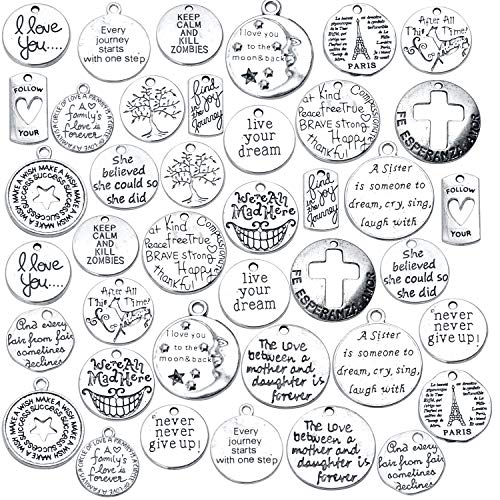 I love
You....
Every
journey
starts
with one step
KEEP
CALM AND
AND KILL
ZOMBIES
I love you
to the
moon&back
PARIS
After All
This Time?
FOLLOW
YOUR
A
family's
love is
forever
find
joy in
the
Journey
live
your
dream
Kind
free True
Peace
BRAVE strong
Happy
thankful
Compassionate
FE ESPERANZA AMOR
MAKE A WISH MAKE A WISH MAKE A WISH
SUCCESS SUCCESS SUCCESS
She
believed
she could so
she did
We're All
Mad Here
find
joy in
the
Journey
A Sister
is someone to
dream, cry, sing,
laugh with
FOLLOW
YOUR
I love
You....
KEEP
CALM AND
AND KILL
ZOMBIES
Kind
free True
Peace
BRAVE strong
Happy
thankful
Compassionate
live
your
dream
FE ESPERANZA AMOR
She
believed
she could so
she did
And every
fair from fair
sometines
declines
After All
This Time?
We're All
Mad Here
I love you
to the
moon&back
The love
between a
mother and
daughter is
forever
A Sister
is someone to
dream, cry, sing,
laugh with
never
never
give up!
PARIS
MAKE A WISH MAKE A WISH MAKE A WISH
SUCCESS SUCCESS SUCCESS
A
family's
love is
forever
never
never
give up!
Every
journey
starts
with one step
The love
between a
mother and
daughter is
forever
And every
fair from fair
sometines
declines